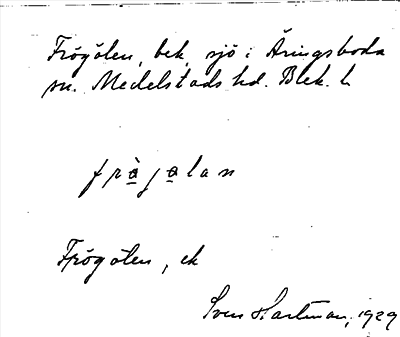 Frögölen, bek, sjö i Äringsboda
sn. Medelstads hd. Blek. l.
frò̲jo̲lan
Frögölen, ek
Sven Hartman, 1929